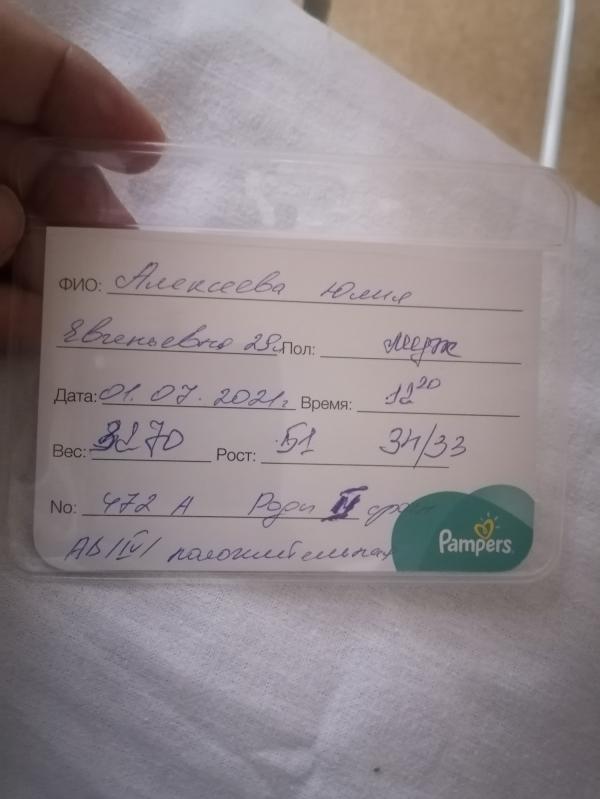 ФИО: Алексеева Юлия
Евгеньевна 29г. Пол: муж
Дата: 01.07.2021г Время: 12 20
Вес: 3270 Рост: 51 34/33
No: 472 А Роды II срочн
АВ/IV/ положительная
Pampers